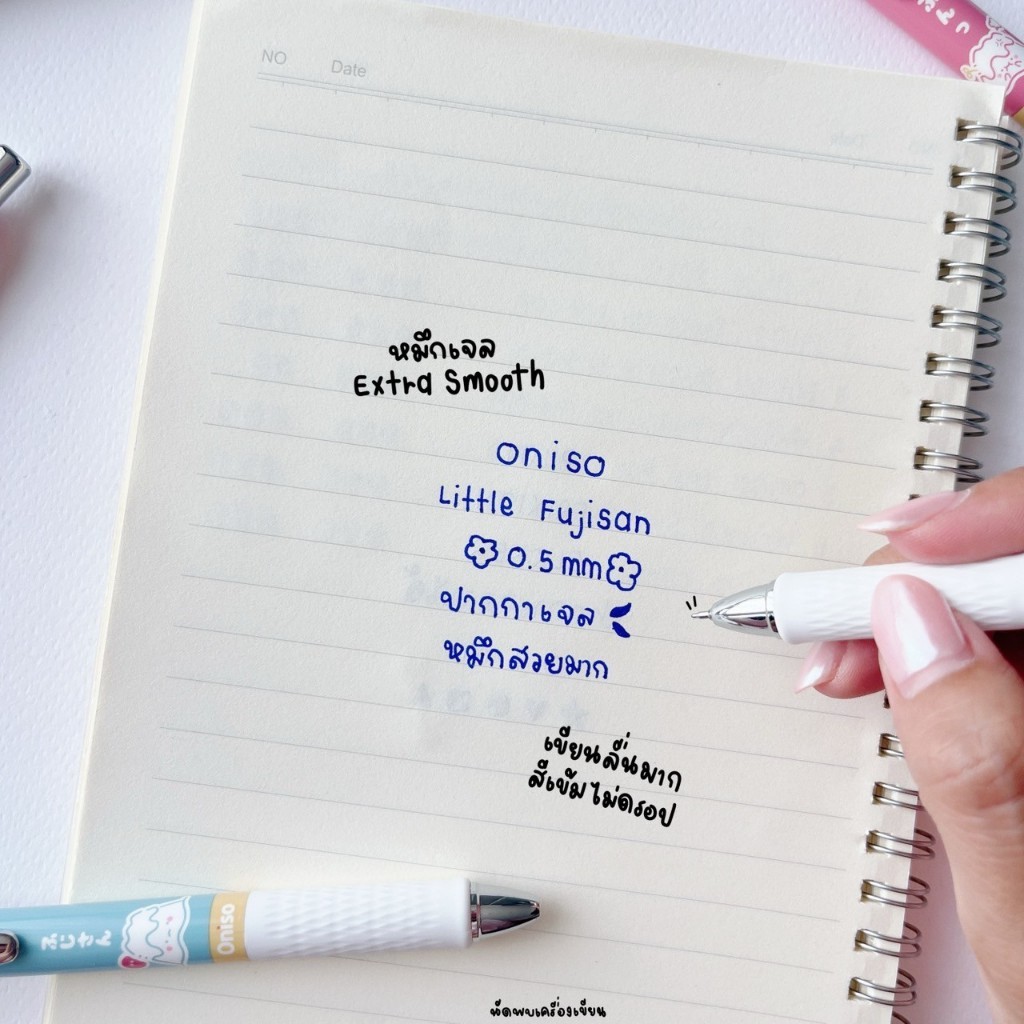 NO Date
หมึกเจล
Extra Smooth
oniso
Little Fujisan
0.5 mm
ปากกาเจล
หมึกสวยมาก
เขียนลื่นมาก
สีเข้มไม่ดรอป
ふじさん Oniso
นัดพบเครื่องเขียน